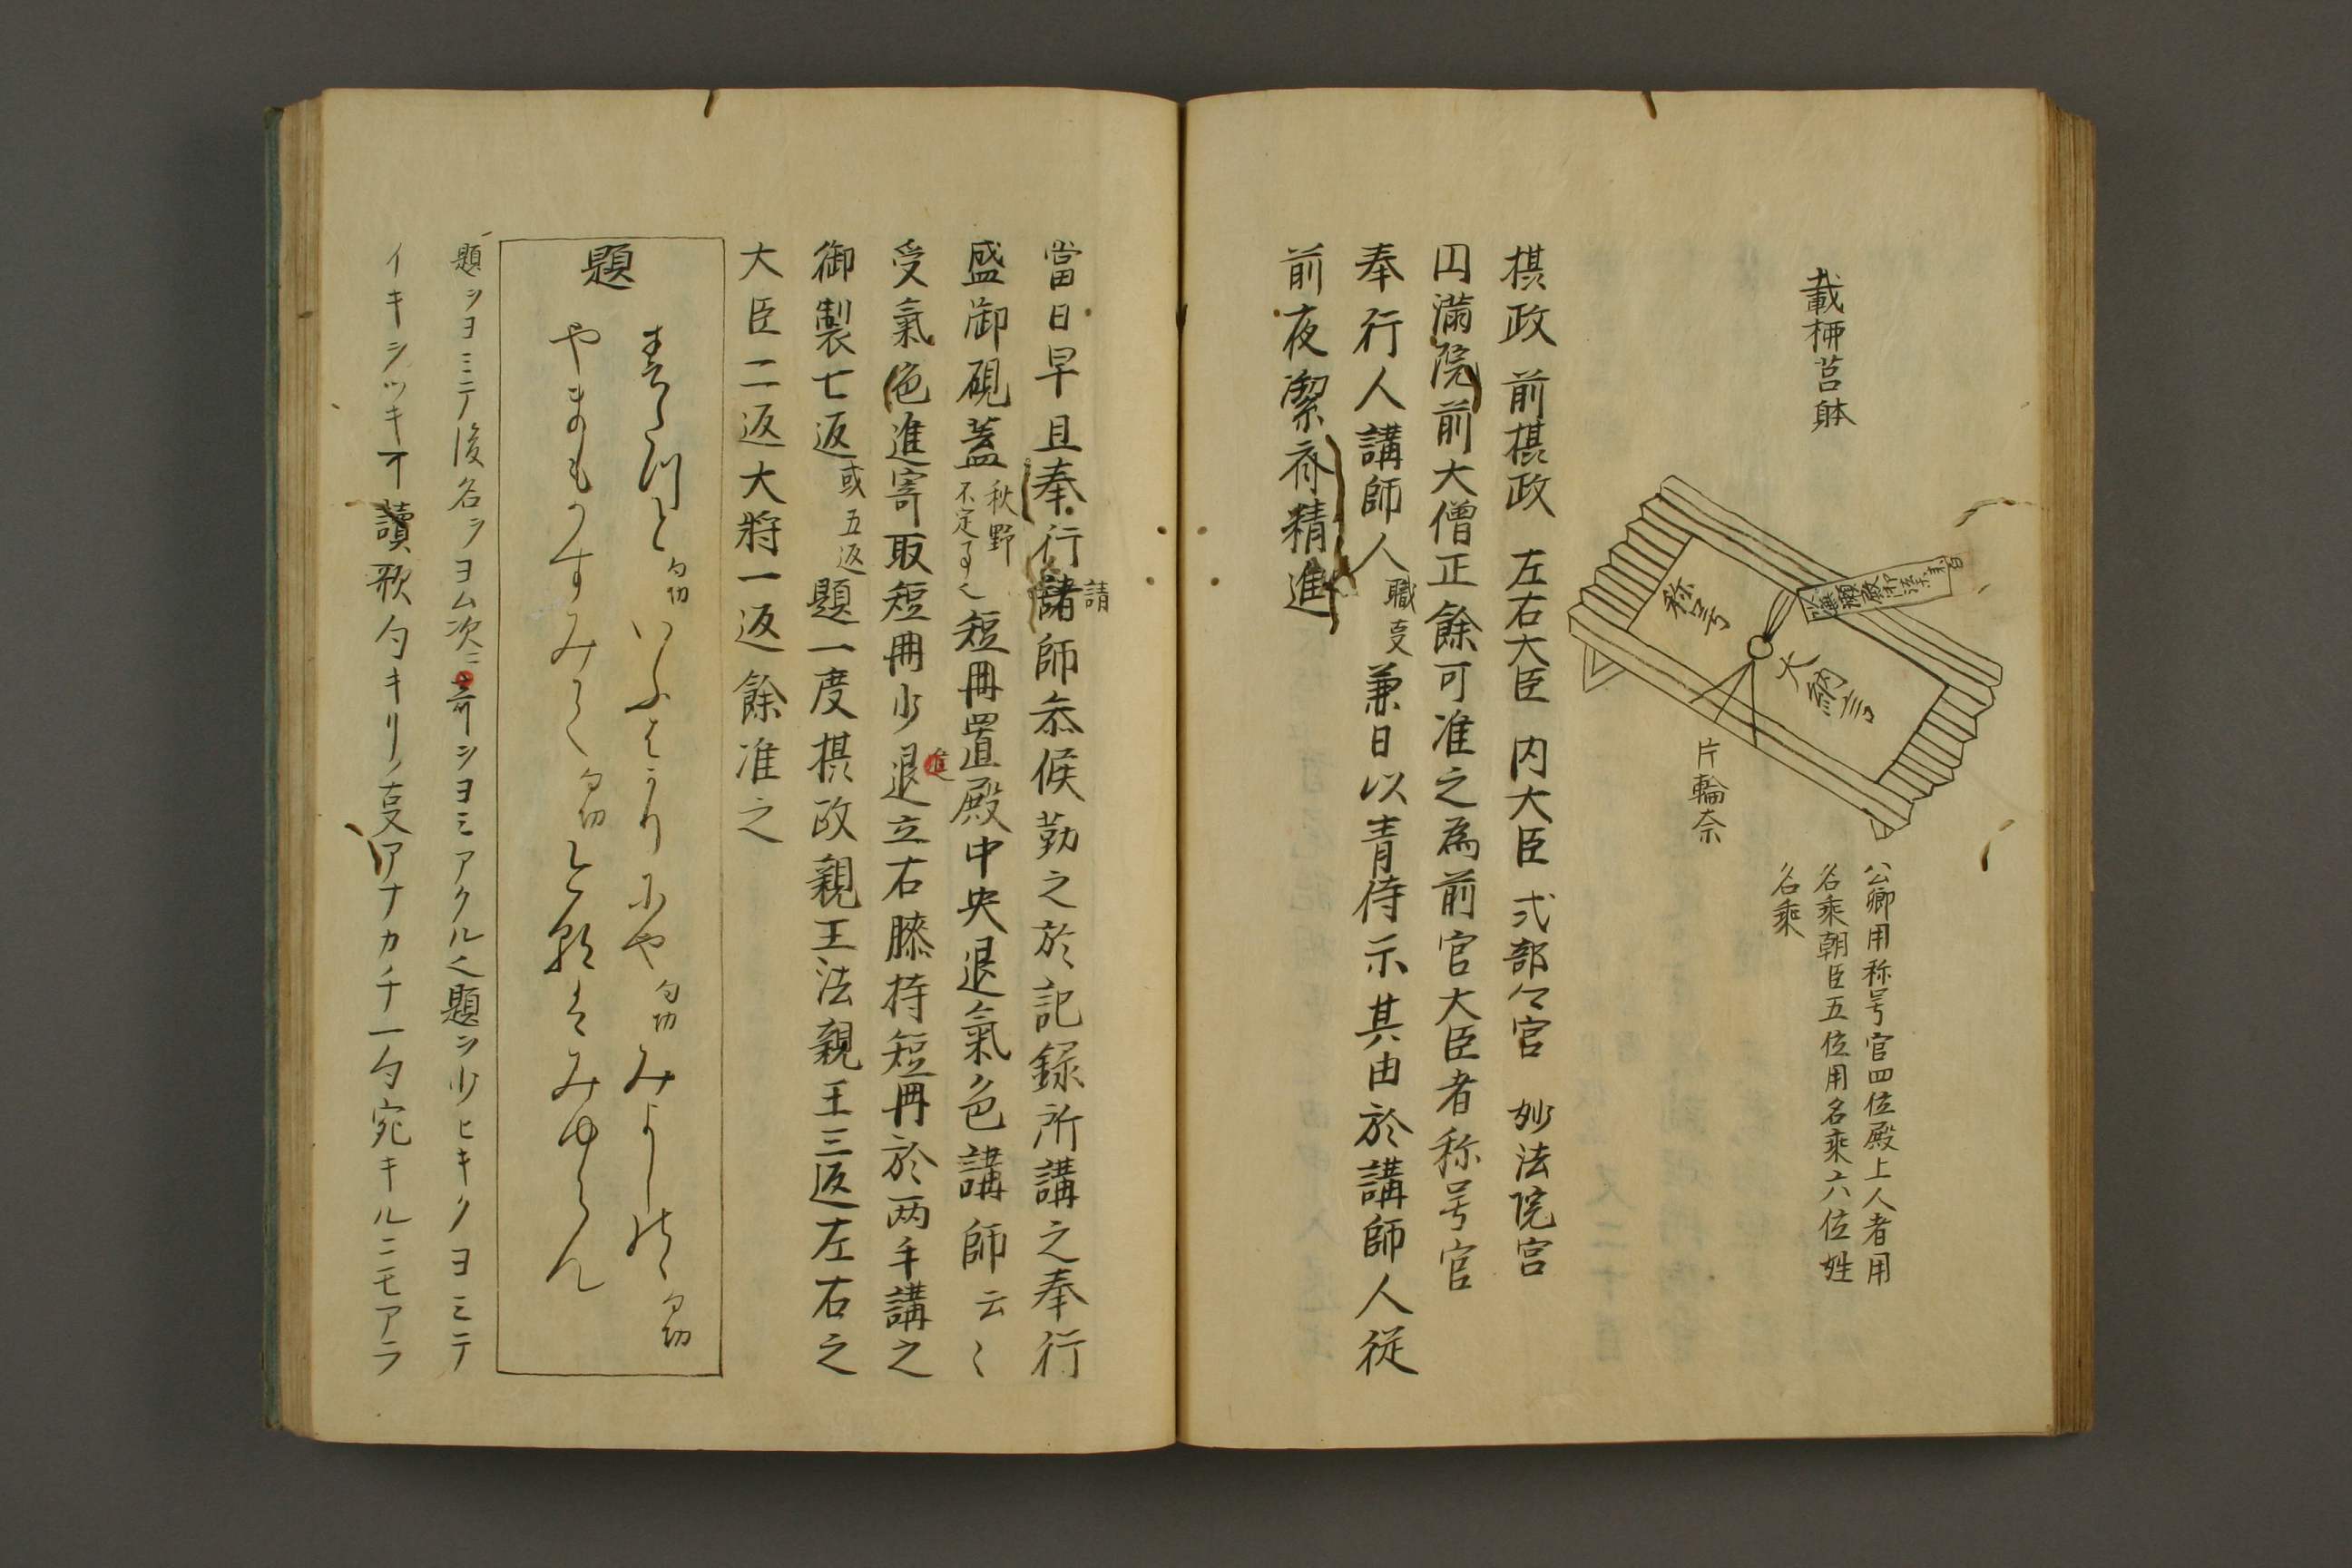 載柳筥躰
称号
大納言
片輪奈
公卿用称号官四位殿上人者用
名乘朝臣五位用名乘六位姓
名乘
摂政 前摂政 左右大臣 内大臣 式部々宮 妙法院宮
円満院前大僧正餘可准之為前官大臣者称号官
奉行人講師人職支兼日以青侍示其由於講師人従
前夜潔斎精進
當日早旦奉行諸師參候勤之於記録所講之奉行
請
盛御硯蓋秋野不定事也短冊置殿中央退氣色講師云々
受氣色進寄取短冊少退立右膝持短冊於両手講之
進
御製七返或五返題一度摂政親王法親王三返左右之
大臣二返大将一返餘准之
題
春たつと句切いふはかりにや句切みよしのゝ句切
やまもかすみて句切けさはみゆらん
題ヲヨミテ後名ヲヨム次ニ哥ヲヨミアクル也題ヲ少ヒキクヨミテ
イキヲツキ可讀歌句キリノ支アナカチ一句宛キルニモアラ